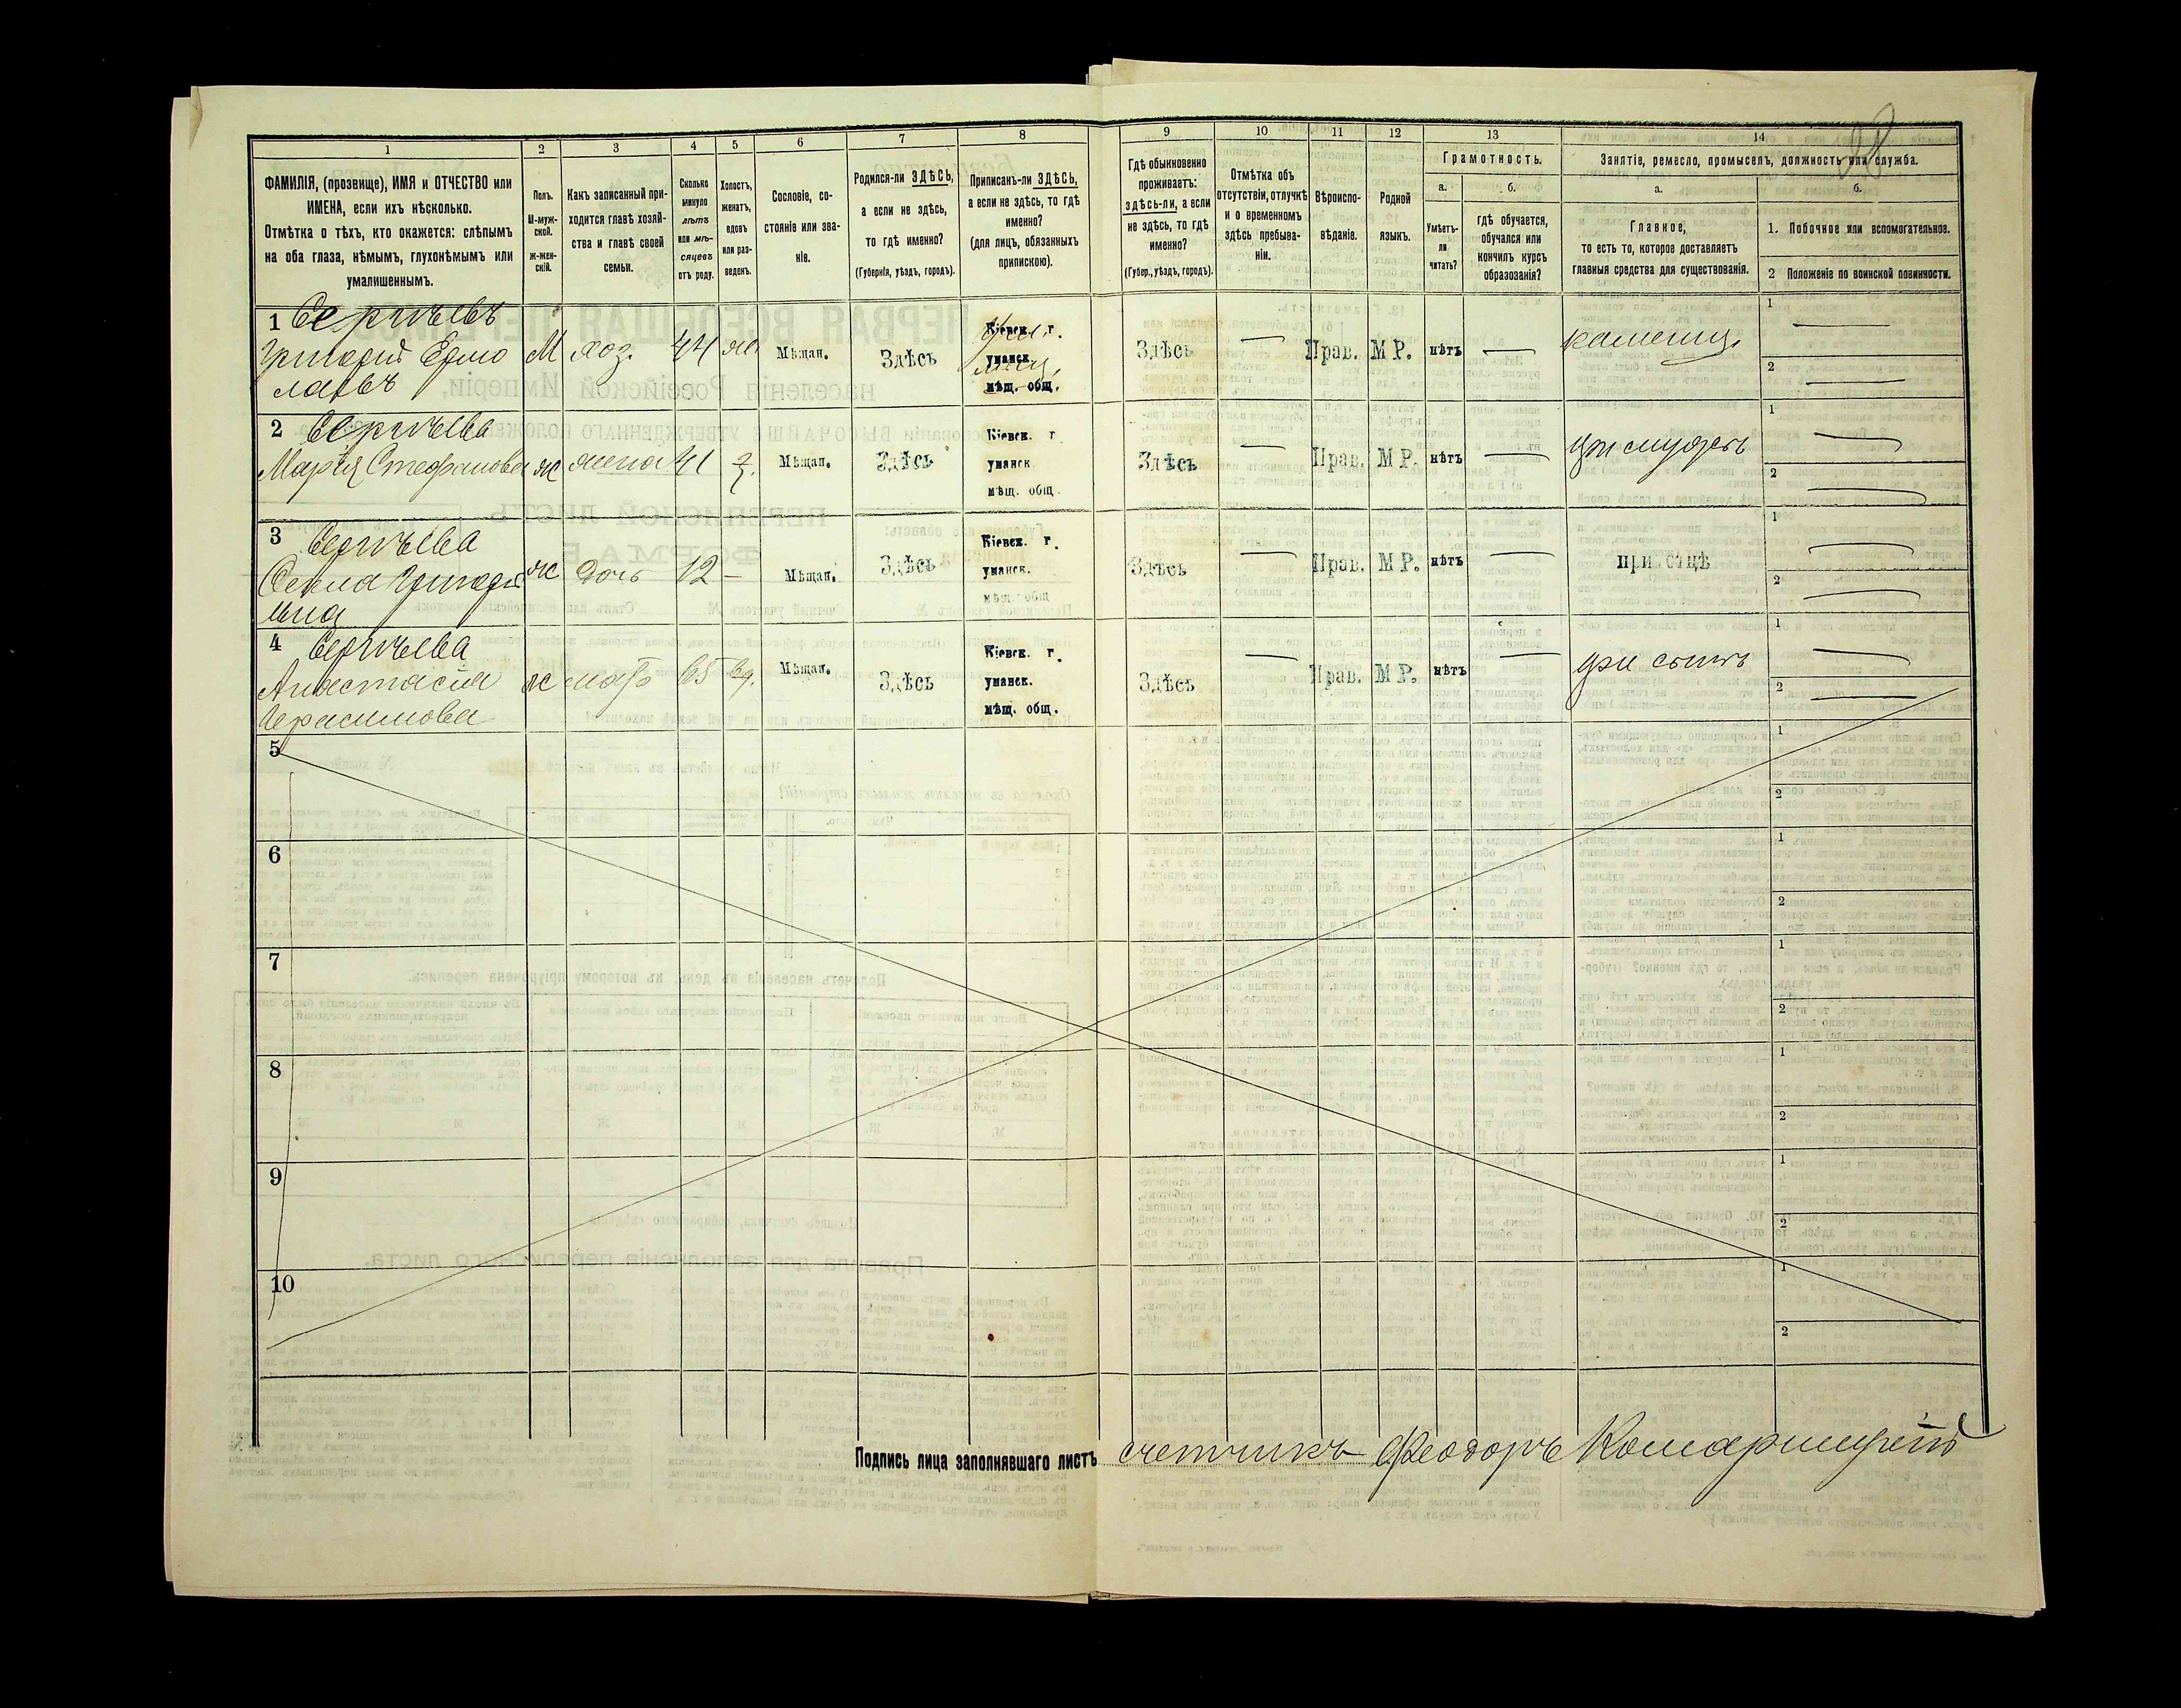 28
1
ФАМИЛІЯ, (прозвище), ИМЯ и ОТЧЕСТВО или
ИМЕНА, если ихъ нѣсколько.
Отмѣтка о тѣхъ, кто окажется: слѣпымъ
на оба глаза, нѣмымъ, глухонѣмымъ или
умалишеннымъ.
2
Полъ.
М-муж-
ской.
Ж-жен-
скій.
3
Какъ записанный при-
ходится главѣ хозяй-
ства и главѣ своей
семьи.
4
Сколько
минуло
лѣтъ
или мѣ-
сяцевъ
отъ роду.
5
Холостъ,
женатъ,
вдовъ
или раз-
веденъ.
6
Сословіе, со-
стояніе или зва-
ніе.
7
Родился-ли ЗДѢСЬ,
а если не здѣсь,
то гдѣ именно?
(Губернія, уѣздъ, городъ).
8
Приписанъ-ли ЗДѢСЬ,
а если не здѣсь, то гдѣ
именно?
(для лицъ, обязанныхъ
припискою).
9
Гдѣ обыкновенно
проживаетъ:
здѣсь-ли, а если
не здѣсь, то гдѣ
именно?
(Губер., уѣздъ, городъ).
10
Отмѣтка объ
отсутствіи, отлучкѣ
и о временномъ
здѣсь пребыва-
ніи.
11
Вѣроиспо-
вѣданіе.
12
Родной
языкъ.
13
Грамотность.
а.
Умѣетъ-
ли
читать?
б.
гдѣ обучается,
обучался или
кончилъ курсъ
образованія?
14
Занятіе, ремесло, промыселъ, должность или служба.
а.
Главное,
то есть то, которое доставляетъ
главныя средства для существованія.
б.
1. Побочное или вспомогательное.
2 Положеніе по воинской повинности.
1 Сергѣевъ
Григорій Ермо
лаевъ
М хоз. 44 Мѣщан. Здѣсь
Кіевск. г.
уманск.
мѣщ. общ.
Здѣсь — Прав. МР. нѣтъ — каменщ.
1 —
2 —
2 Сергѣева
Марія Стефанова ж жена 41 Мѣщан. Здѣсь
Кіевск. г.
уманск.
мѣщ. общ.
Здѣсь — Прав. МР. нѣтъ — при мужѣ
1 —
2 —
3 Сергѣева
Секла Григорь
ева
ж дочь 12 — Мѣщан. Здѣсь
Кіевск. г.
уманск.
мѣщ. общ.
Здѣсь — Прав. МР. нѣтъ — при отцѣ
1 —
2 —
4 Сергѣева
Анастасія
Герасимова
ж мать 65 вд. Мѣщан. Здѣсь
Кіевск. г.
уманск.
мѣщ. общ.
Здѣсь — Прав. МР. нѣтъ — при сынѣ
1 —
2 —
5
1
2
6
1
2
7
1
2
8
1
2
9
1
2
10
1
2
Подпись лица заполнявшаго листъ счетчикъ Феодоръ